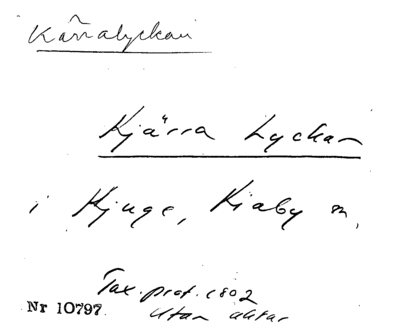 Kärralyckan
Kjärra Lyckan
i Kjuge, Kiaby m,
Tax. prot. 1802
Nr 10797. utan